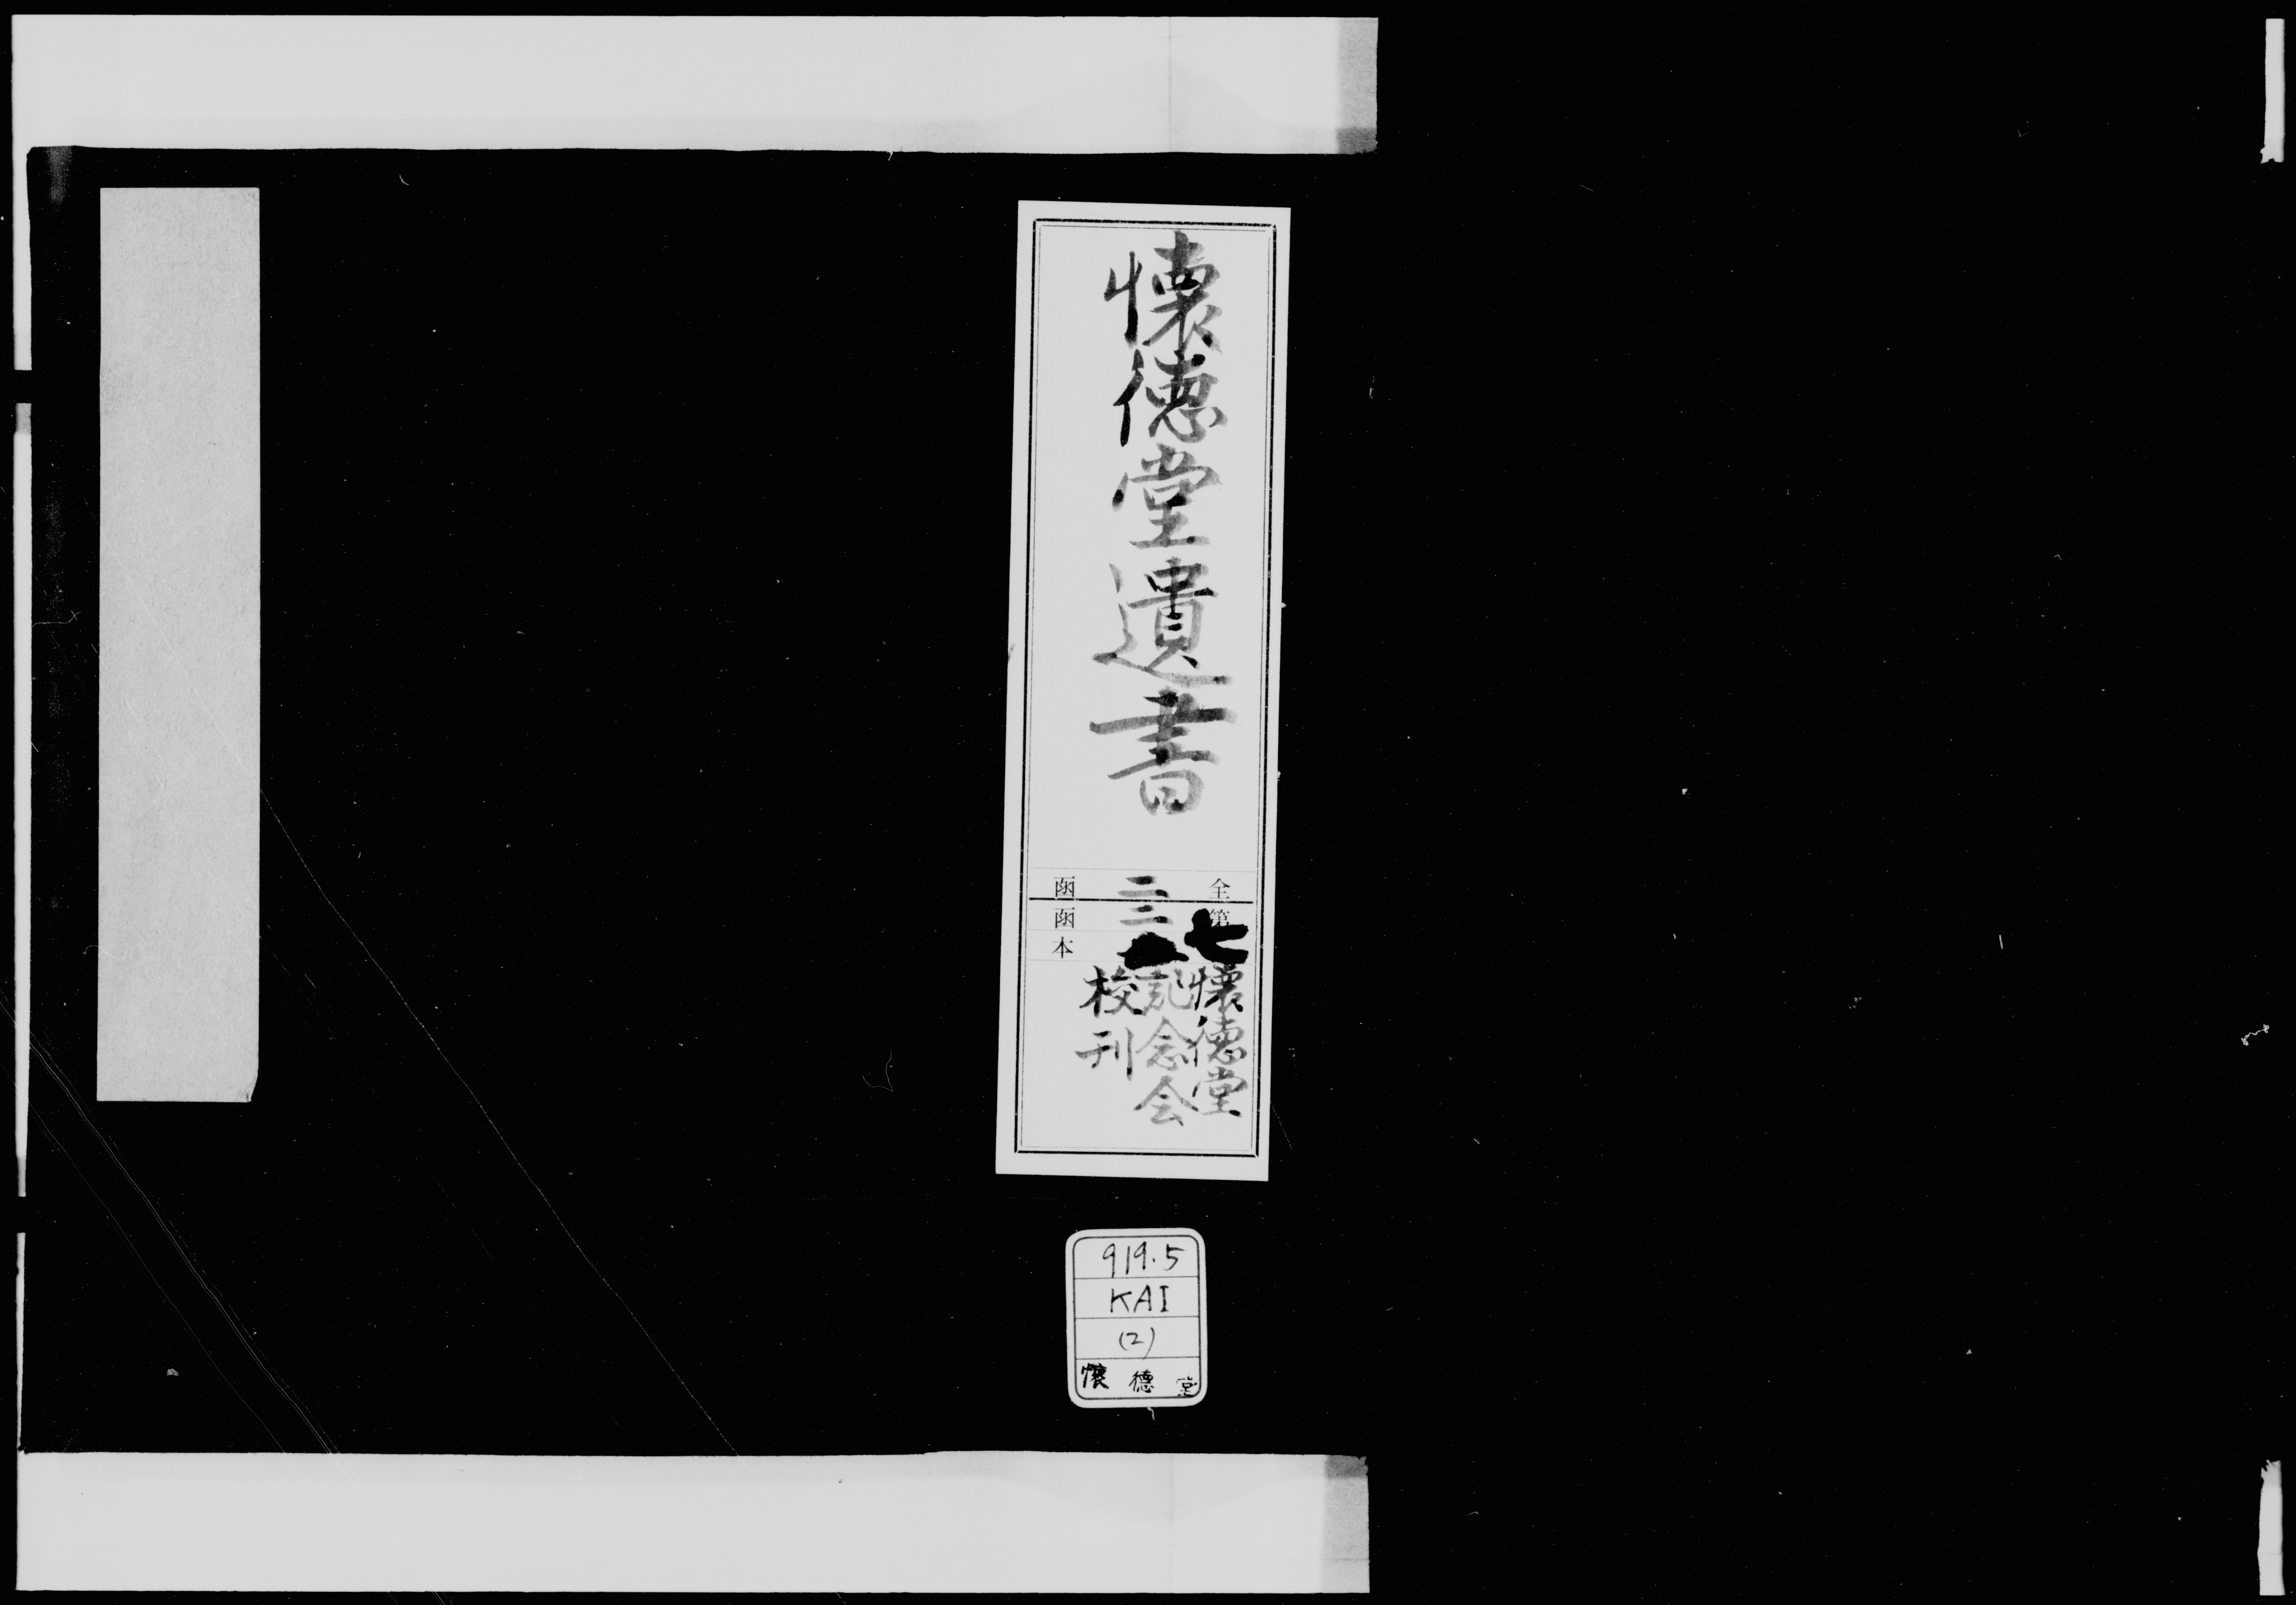 懐徳堂遺書
全三函
第二函
本
懐徳堂
記念会
校刊
919.5
KAI
(2)
懐德堂